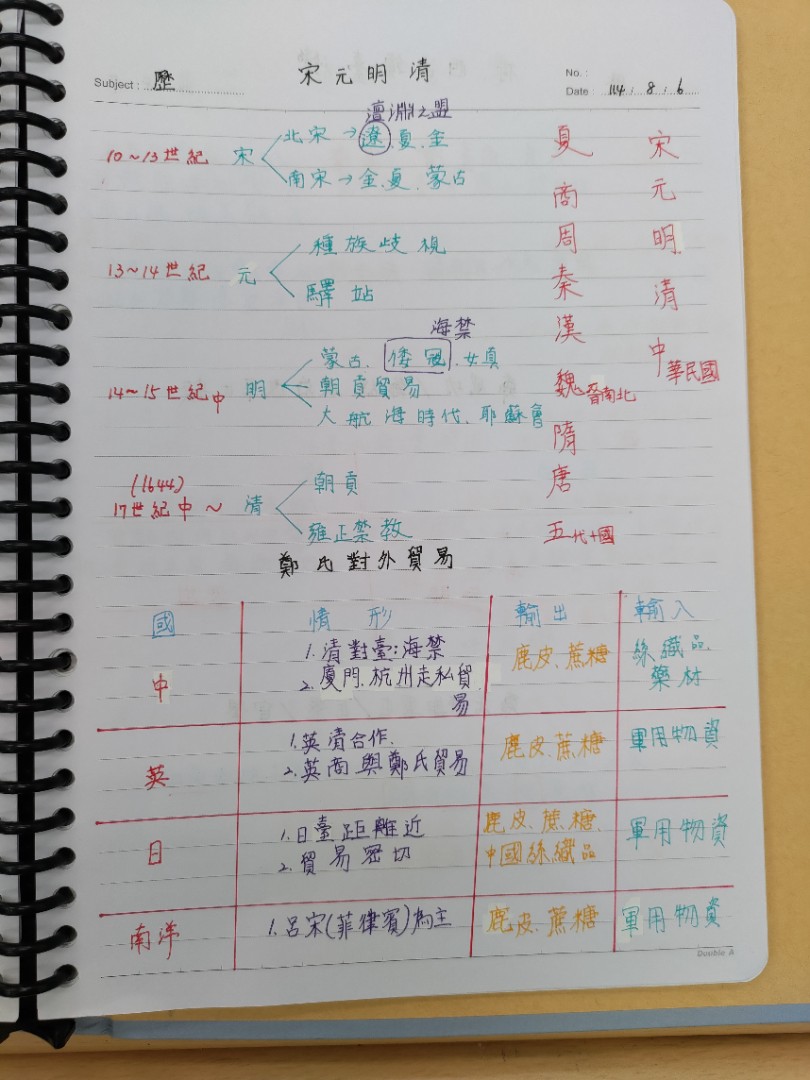 Subject: 歷
宋元明清
No.:
Date: 114 : 8 : 6
澶淵之盟
10~13世紀 宋
北宋→遼.夏.金
南宋→金.夏.蒙古
13~14世紀 元
種族歧視
驛站
海禁
14~15世紀中 明
蒙古.倭冦.女真
朝貢貿易
大航海時代.耶穌會
(1644)
17世紀中~ 清
朝貢
雍正禁教
夏商周秦漢魏晉南北隋唐五代十國
宋元明清中華民國
鄭氏對外貿易
國 情形 輸出 輸入
中
1.清對臺:海禁
2.廈門.杭州走私貿易
鹿皮、蔗糖
絲織品.
藥材
英
1.英清合作.
2.英商與鄭氏貿易
鹿皮、蔗糖
軍用物資
日
1.日臺距離近
2.貿易密切
鹿皮、蔗糖、
中國絲織品
軍用物資
南洋
1.呂宋(菲律賓)為主
鹿皮、蔗糖
軍用物資
Double A